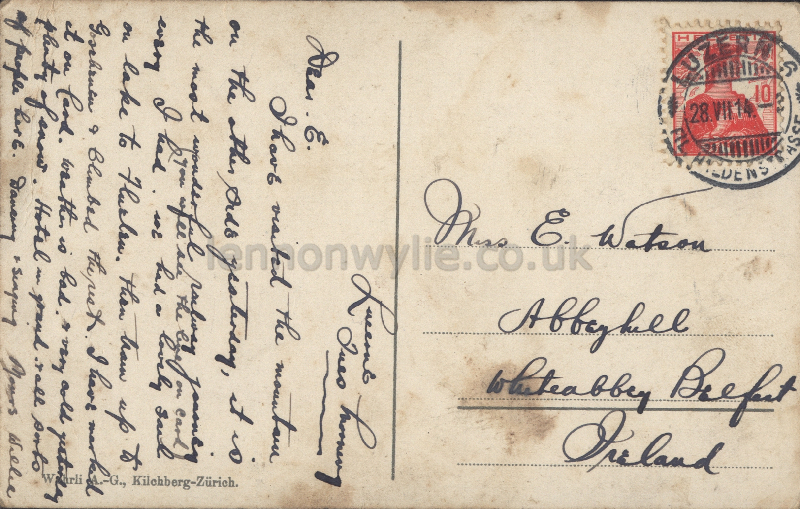 Lucerne
Tues Morning
Dear E.
I have visited the mountain
on the other side yesterday, it is
the most wonderful railway journey
(you will see the line on card)
every I had. we had a lovely sail
on lake to Fluelen. then train up to
Goschenen & Climbed the rest. I have marked
it on Card. weather is bad & very cold yesterday
plenty of snow. Hotel is grand & all sorts
of people here. Dancing & singing Yours Willie
Wehrli A.-G., Kilchberg-Zürich.
HELVETIA
10
LUZERN 6
28.VII.14.
HIRSCHENSTRASSE
Miss E. Watson
Abbeyhill
Whiteabbey Belfast
Ireland
lennonwylie.co.uk